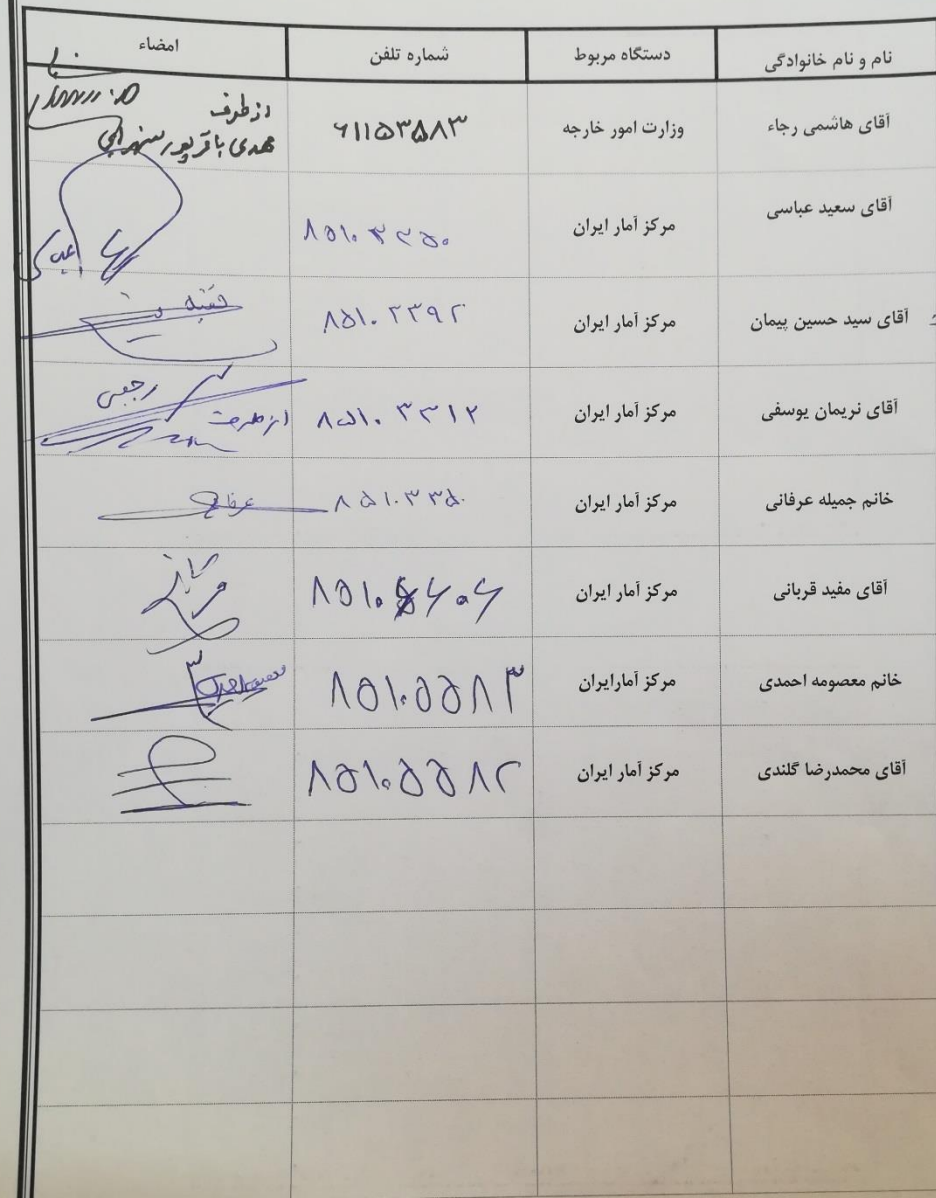 نام و نام خانوادگی دستگاه مربوط شماره تلفن امضاء
آقای هاشمی رجاء وزارت امور خارجه ۶۱۱۵۳۵۸۳ از طرف
مهدی باقرپور
آقای سعید عباسی مرکز آمار ایران ۸۵۱۰۳۲۵۰
آقای سید حسین پیمان مرکز آمار ایران ۸۵۱۰۳۳۹۲
آقای نریمان یوسفی مرکز آمار ایران ۸۵۱۰۳۳۱۲ از طرف رجبی
خانم جمیله عرفانی مرکز آمار ایران ۸۵۱۰۳۳۵۰ عرفانی
آقای مفید قربانی مرکز آمار ایران
خانم معصومه احمدی مرکز آمارایران ۸۵۱۰۵۵۸۳
آقای محمدرضا گلندی مرکز آمار ایران ۸۵۱۰۵۵۸۲